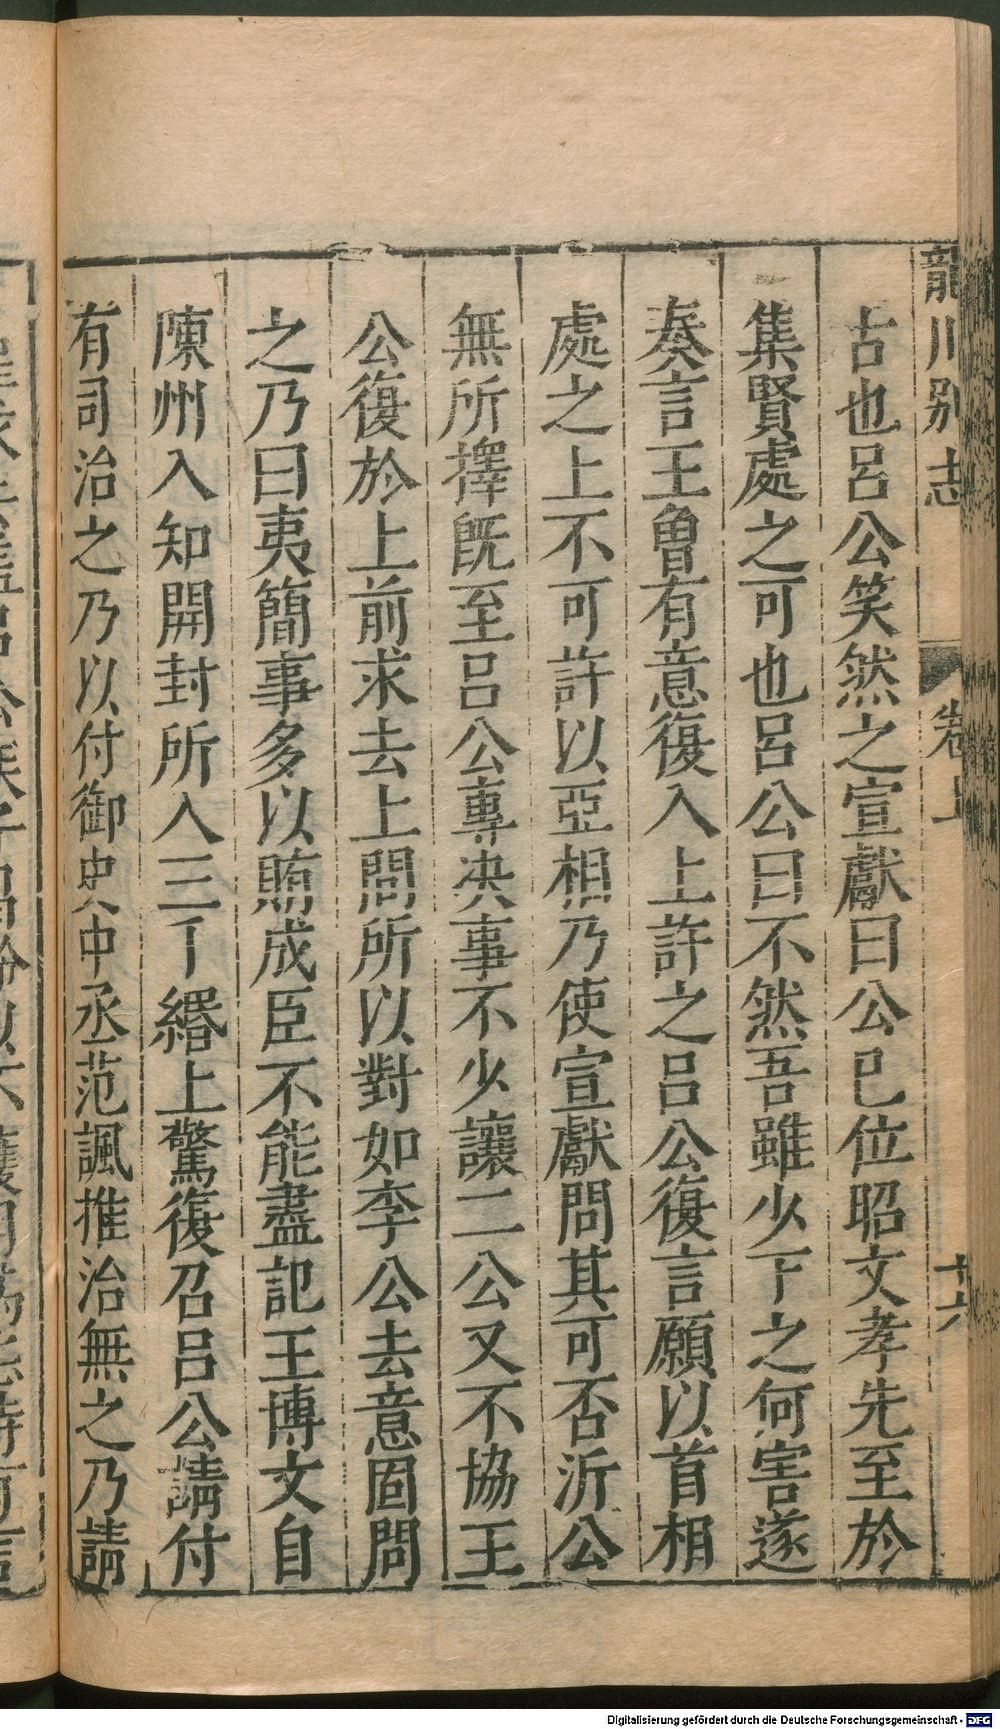 龍川别志 卷上 十六
古也呂公笑然之宣獻曰公已位昭文孝先至於
集賢處之可也呂公曰不然吾雖少下之何害遂
奏言王魯有意復入上許之呂公復言願以首相
處之上不可許以亞相乃使宣獻問其可否沂公
無所擇旣至呂公專决事不少讓二公又不協王
公復於上前求去上問所以對如李公去意固問
之乃曰夷簡事多以賄成臣不能盡記王博文自
陳州入知開封所入三丫緡上驚復召呂公請付
有司治之乃以付御史中丞范諷推治無之乃請
Digitalisierung gefördert durch die Deutsche Forschungsgemeinschaft - DFG